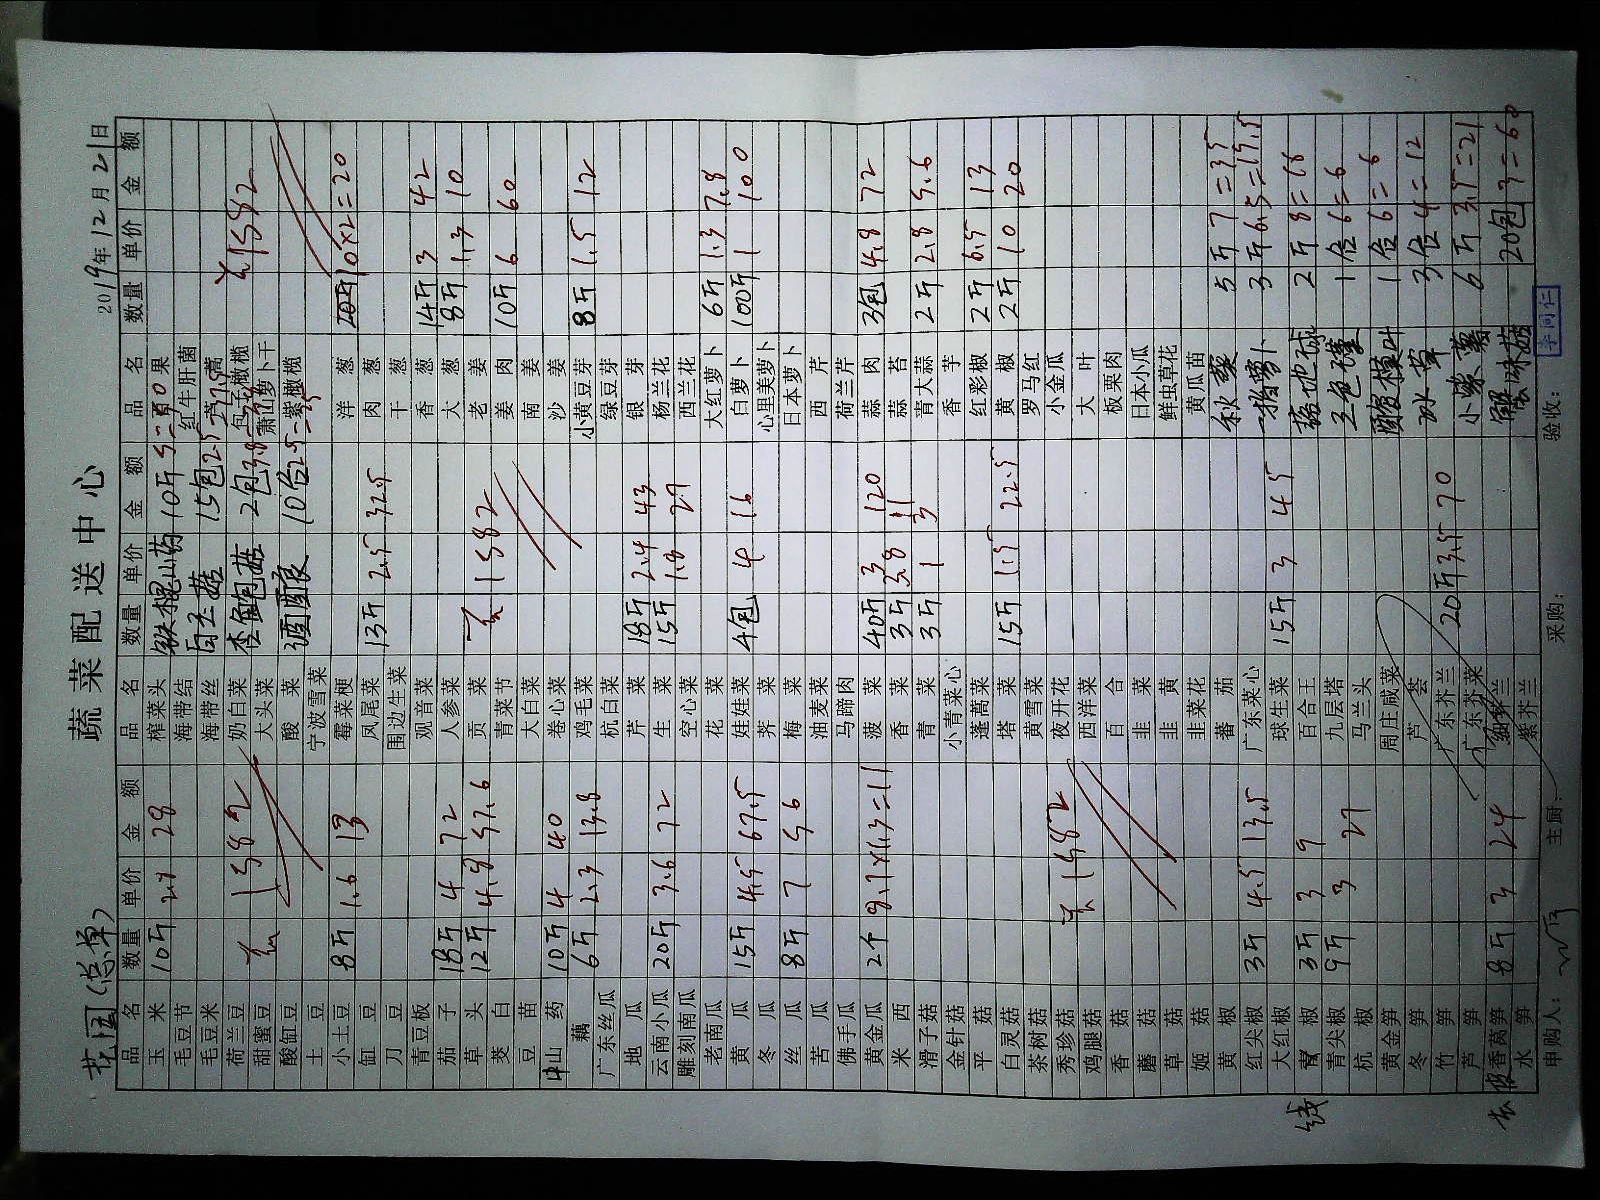 蔬菜配送中心
花园(总单)
2019年12月21日
品名 数量 单价 金额 品名 数量 单价 金额 品名 数量 单价 金额
玉米 10斤 2.8 28 榨菜头 铁棍山药 10斤
毛豆节 海带结 白玉菇 15包 红牛肝菌
毛豆米 海带丝
荷兰豆 奶白菜 杏鲍菇 2包 3.8 包子橄榄 1582
甜蜜豆 1582 大头菜 萧山萝卜干
酸缸豆 酸菜 10 2.5 紫橄榄
土豆 宁波雪菜
小土豆 8斤 1.6 13 霉菜梗 洋葱 10×2=20
缸豆 凤尾菜 13斤 2.5 32.5 肉葱
刀豆 围边生菜 干葱
青豆板 观音菜 香葱 14斤 3 42
茄子 18斤 4 72 人参菜 大葱 8斤 1.3 10
草头 12斤 4.8 57.6 贡菜 1582 老姜
茭白 青菜节 姜肉 10斤 6 60
豆苗 大白菜 南姜
山药 10斤 4 40 卷心菜 沙姜
藕 6斤 2.3 13.8 鸡毛菜 小黄豆芽 8斤 1.5 12
广东丝瓜 杭白菜 绿豆芽
地瓜 芹菜 18斤 2.4 43 银芽
云南小瓜 20斤 3.6 72 生菜 15斤 1.8 27 杨兰花
雕刻南瓜 空心菜 西兰花
老南瓜 花菜 大红萝卜 6斤 1.3 7.8
黄瓜 15斤 4.5 67.5 娃娃菜 4包 4 16 白萝卜 100斤 1 100
冬瓜 荠菜 心里美萝卜
丝瓜 8斤 7 56 梅菜 日本萝卜
苦瓜 油麦菜 西芹
佛手瓜 马蹄肉 荷兰芹
黄金瓜 2个 菠菜 40斤 3 120 蒜肉 3包 4.8 72
米西 香菜 3斤 3.8 11 蒜苔
滑子菇 青菜 3斤 1 3 青大蒜 2斤 2.8 5.6
金针菇 小青菜心 香芋
平菇 蓬蒿菜 红彩椒 2斤 6.5 13
白灵菇 塔菜 15斤 1.5 22.5 黄椒 2斤 10 20
茶树菇 黄雪菜 罗马红
秀珍菇 1582 夜开花 小金瓜
鸡腿菇 西洋菜 大叶
香菇 百合 板栗肉
蘑菇 韭菜 日本小瓜
草菇 韭黄 鲜虫草花
姬菇 韭菜花 黄瓜苗
黄椒 蕃茄 秋葵 5斤 7=35
红尖椒 3斤 4.5 13.5 广东菜心 3斤 6.5=19.5
大红椒 球生菜 15斤 3 45 2斤 8=
青椒 3斤 3 9 百合王 1 6=6
线 青尖椒 9斤 3 27 九层塔 1 6=6
杭椒 马兰头
黄金笋 周庄咸菜 冰草 3 4=12
冬笋 芦荟
竹笋 广东芥兰 20斤 3.5 70 小紫薯 6斤 3.5=21
芦笋 广东芥菜
香莴笋 8斤 3 24 20包 3=60
水笋 紫芥兰
申购人： 主厨： 采购： 验收：